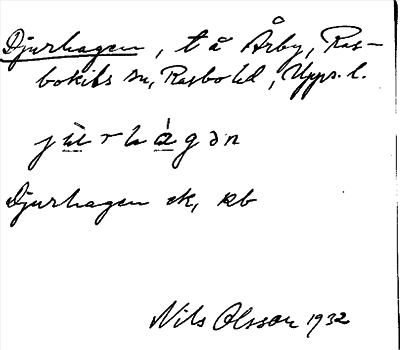 Djurhagen, t å Årby, Ras-
bokils sn, Rasbo hd, Upps. l.
jùrhàgən
Djurhagen ek, kb
Nils Olsson 1932